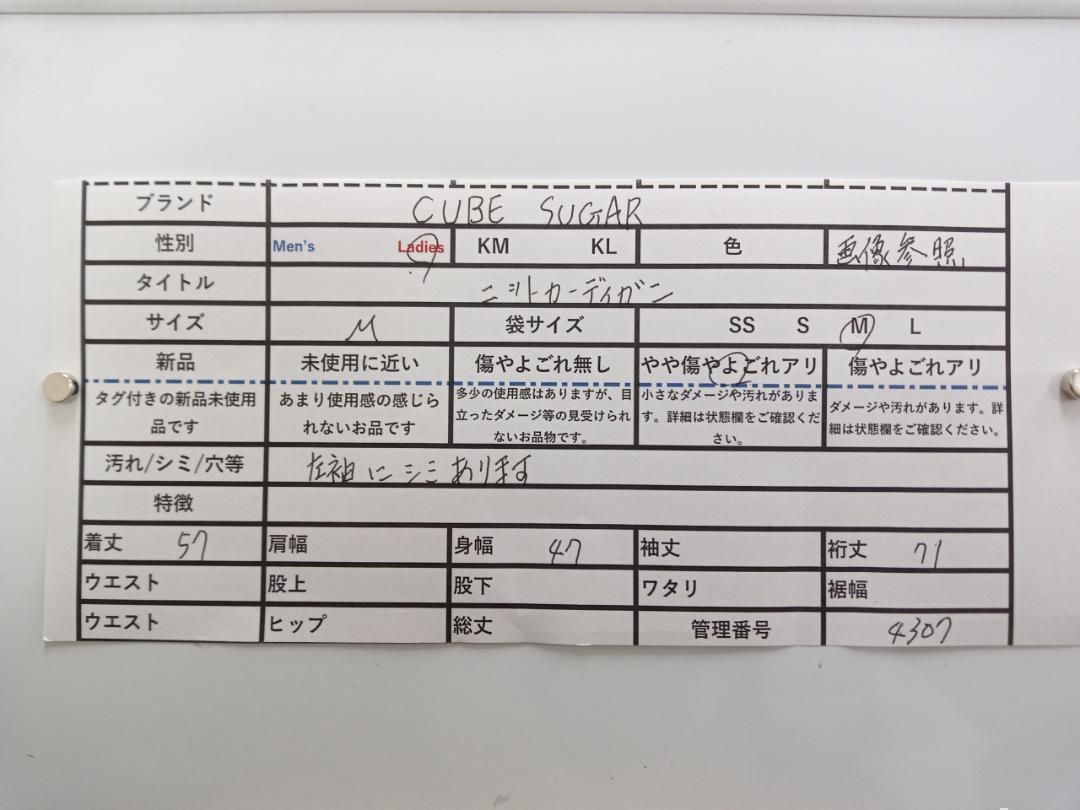 ブランド CUBE SUGAR
性別 Men's Ladies KM KL 色 画像参照
タイトル ニットカーディガン
サイズ M 袋サイズ SS S M L
新品 未使用に近い 傷やよごれ無し やや傷やよごれアリ 傷やよごれアリ
タグ付きの新品未使用品です あまり使用感の感じられないお品です 多少の使用感はありますが、目立ったダメージ等の見受けられないお品物です。 小さなダメージや汚れがあります。詳細は状態欄をご確認ください。 ダメージや汚れがあります。詳細は状態欄をご確認ください。
汚れ/シミ/穴等 左袖にシミあります
特徴
着丈 57 肩幅 身幅 47 袖丈 裄丈 71
ウエスト 股上 股下 ワタリ 裾幅
ウエスト ヒップ 総丈 管理番号 4307